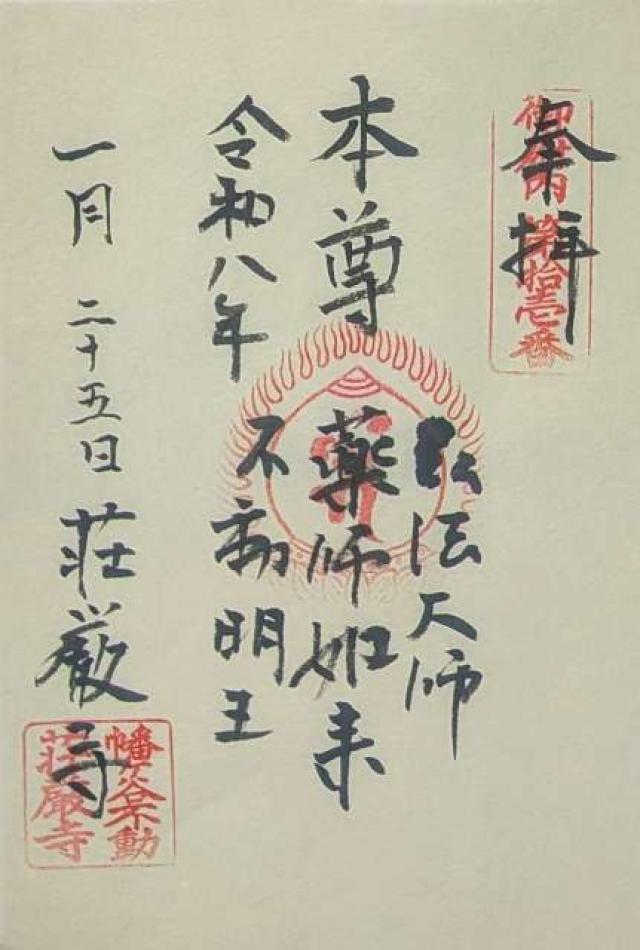 奉拝
御府内第拾壱番
弘法大師
本尊 薬師如来
不動明王
令和八年
一月二十五日 荘厳寺
幡ヶ谷不動
荘厳寺